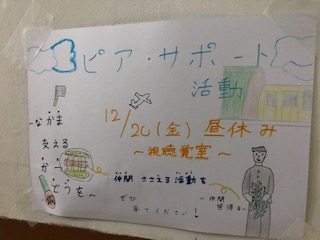 ピア・サポート
活動
12/20(金) 昼休み
～視聴覚室～
～なかま
支える
かつ
どうを～
仲間 ささえる 活動を
ぜひ
来てください!